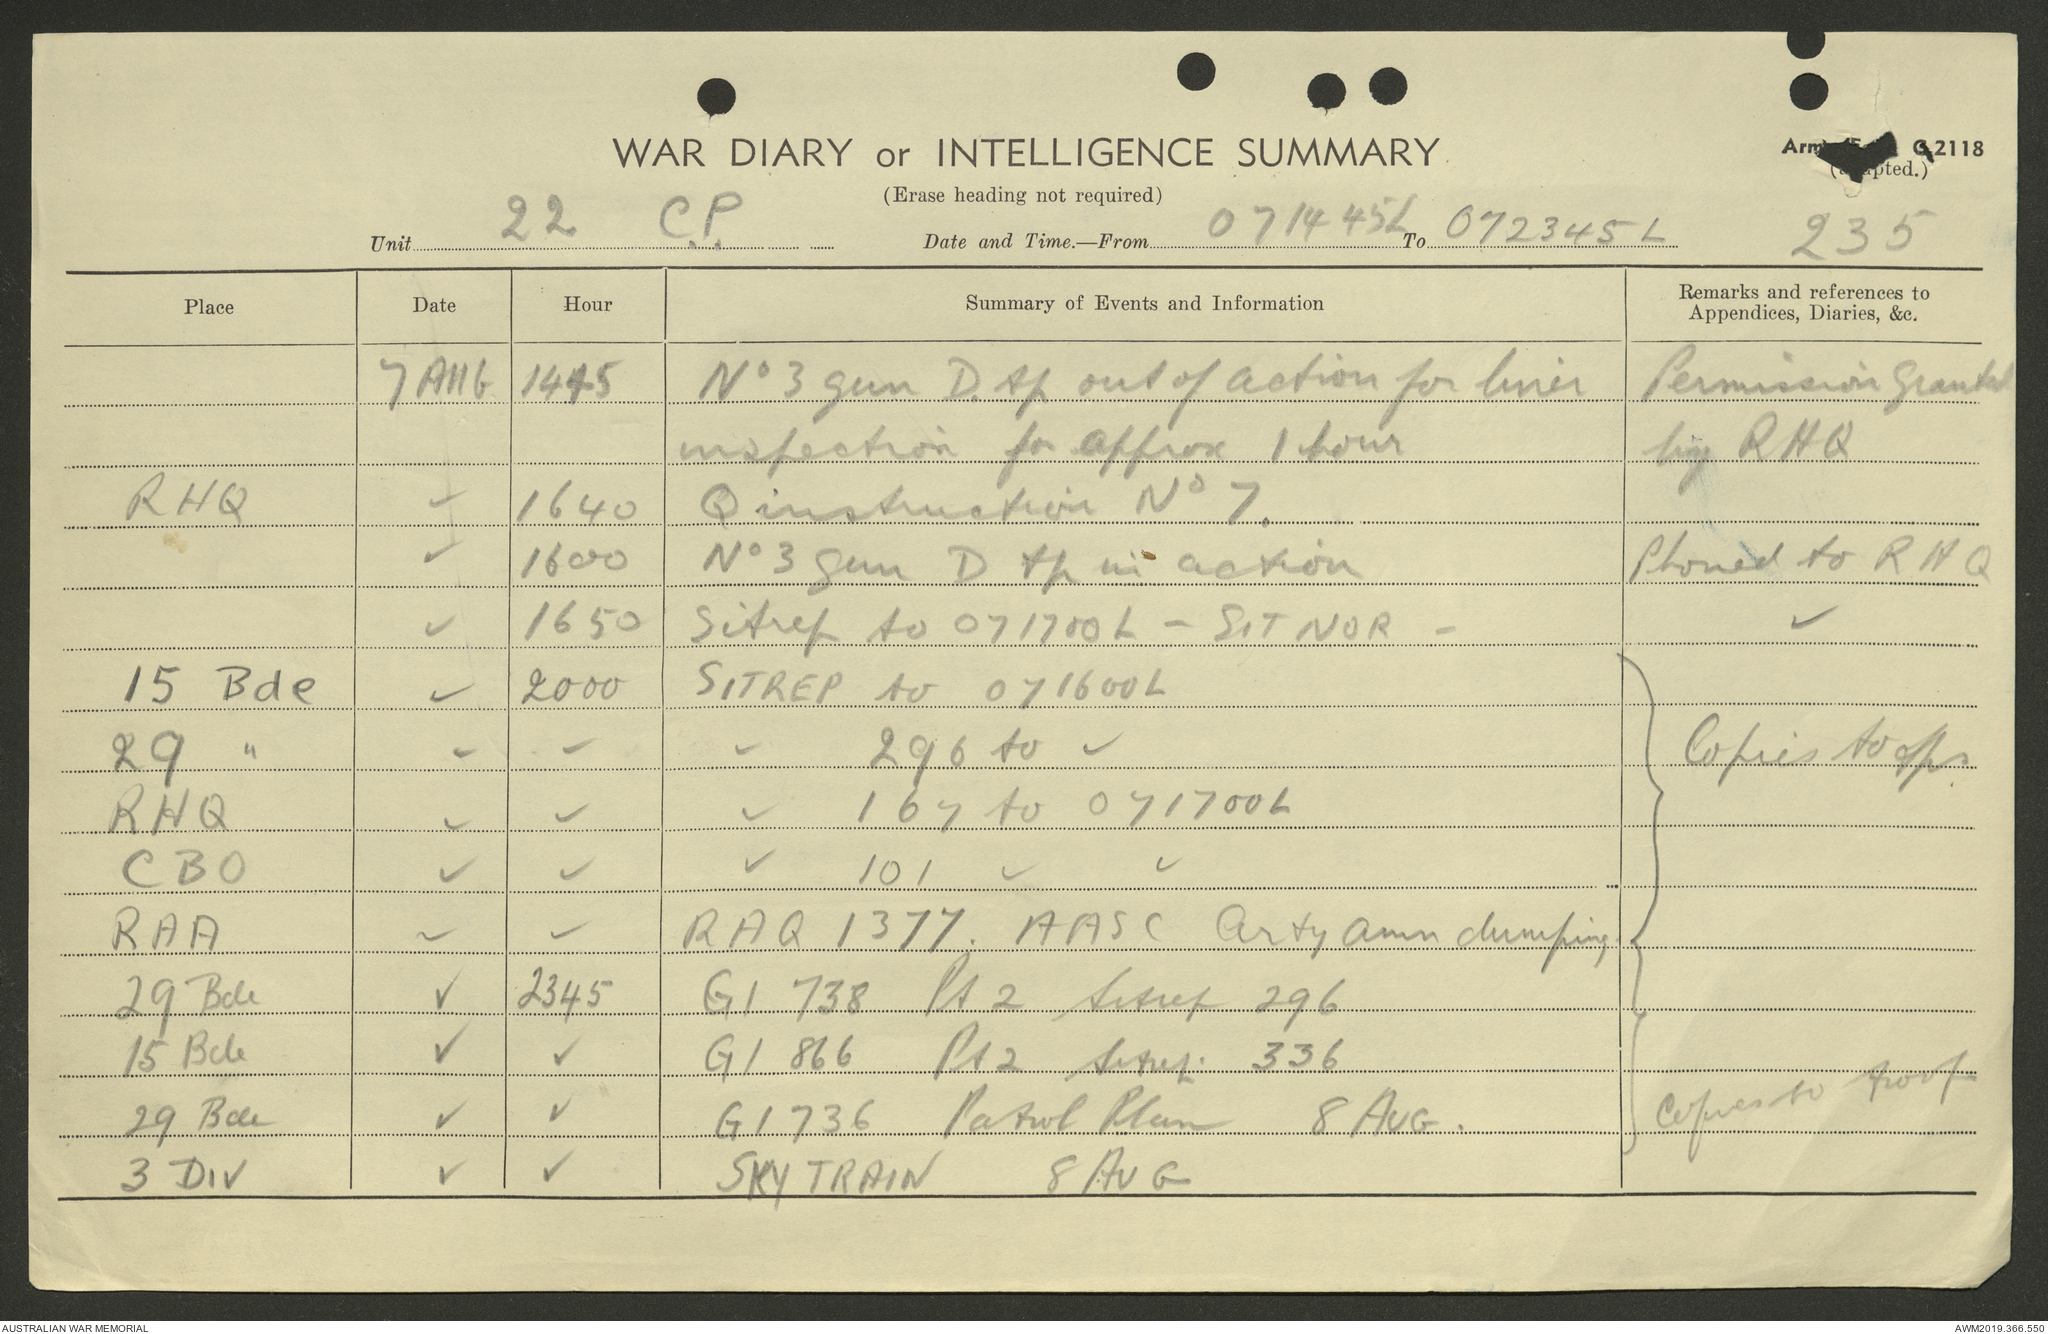 WAR DIARY or INTELLIGENCE SUMMARY
(Erase heading not required)
Army G.2118
Unit 22 C.P. Date and Time.—From 071445L To 072345L
235
Place Date Hour Summary of Events and Information Remarks and references to Appendices, Diaries, &c.
7 AUG 1445 No 3 gun D. tp out of action for liner Permission granted
inspection for approx 1 hour by RHQ
RHQ ✓ 1640 Q instruction No 7.
✓ 1600 No 3 gun D tp in action Phoned to RHQ
✓ 1650 Sitrep to 071700L - SIT NOR - ✓
15 Bde ✓ 2000 SITREP to 071600L
29 " ✓ ✓ ✓ 296 to ✓ Copies to ops
RHQ ✓ ✓ ✓ 167 to 071700L
CBO ✓ ✓ ✓ 101 ✓ ✓
RAA ✓ ✓ RAQ 1377. AASC Arty Amn dumping
29 Bde ✓ 2345 G1 738 Pt 2 Sitrep 296
15 Bde ✓ ✓ G1 866 Pt 2 Sitrep. 336
29 Bde ✓ ✓ G1 736 Patrol Plan 8 AUG. Copies to troop
3 DIV ✓ ✓ SKYTRAIN 8 AUG
AUSTRALIAN WAR MEMORIAL AWM2019.366.550